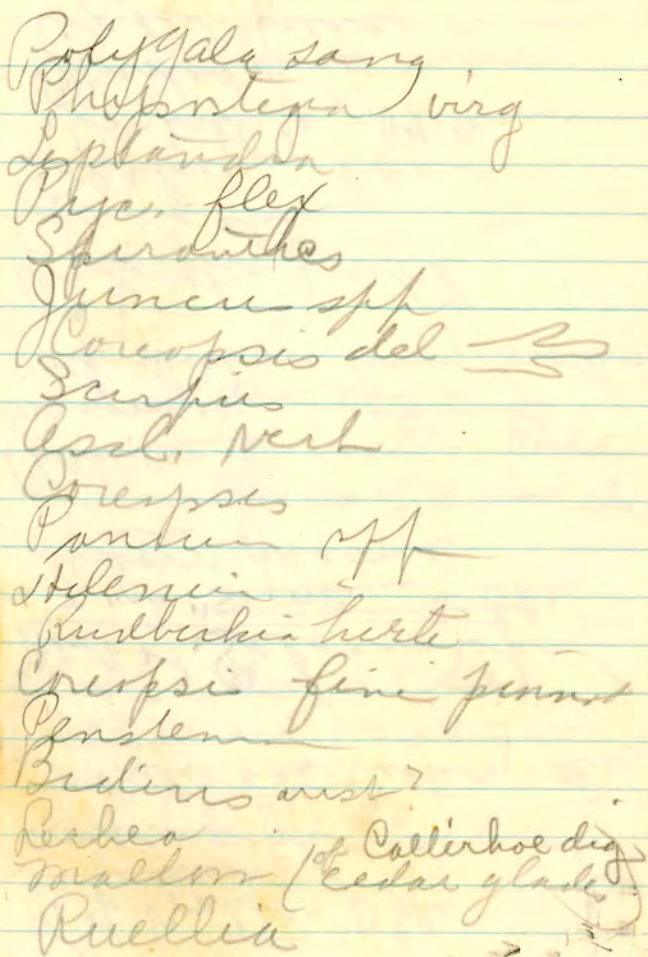 Polygala sang
Physostegia virg
Leptandra
Pyc. flex
Spiranthes
Juncus spp
Coreopsis del
Scirpus
Ascl. vert
Coreopsis
Panicum spp
Helenium
Rudbeckia hirta
Coreopsi fine pinnat
Penstemon
Bidens arist?
Lechea
Mallow (of Callirhoe dig
cedar glades)
Ruellia